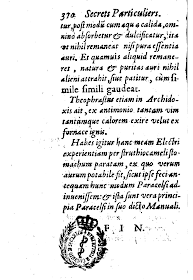 370 Secrets Particuliers.
tur, post modũ cum aqua calida, omnino absorbetur & dulcificatur, ita ut nihil remaneat nisi pura essentia auri. Et quamuis aliquid remaneret, natura & puritas auri nihil alieni attrahit, siue patitur, cùm simile simili gaudeat.
Theophrastus etiam in Archidoxis ait, ex antimonio tantam vim tantúmque calorem exire velut ex fornace ignis.
Habes igitur hanc meam Electri experientiam per struthiocameli stomachum paratam, ex quo verum aurum potabile fit, sicut ipse feci antequam hunc modum Paracelsi adinuenissem: & ista sunt vera principia Paracelsi in suo dicto Manuali.
F I N.